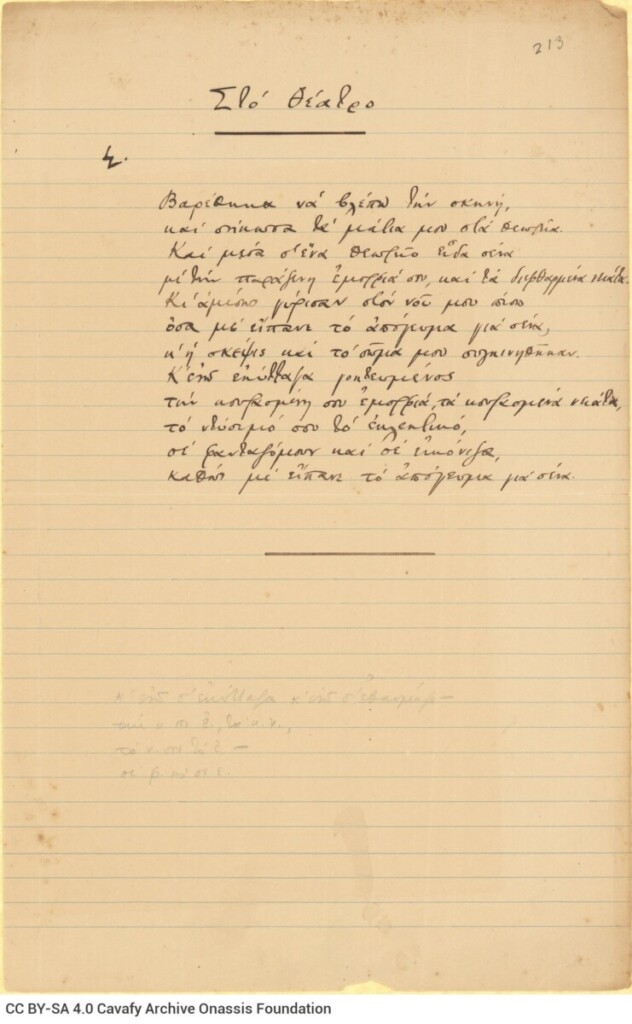 213
Στό θέατρο
Βαρέθηκα νά βλέπω τήν σκηνή,
καί σήκωσα τά μάτια μου στά θεωρεῖα.
Καί μέσα σ' ἕνα θεωρεῖο εἶδα σένα
μέ τήν παράξενη ἐμορφιά σου, καί τά διεφθαρμένα νειάτα.
Κι ἀμέσως γύρισαν στόν νοῦ μου πίσω
ὅσα μέ εἴπανε τό ἀπόγευμα γιά σένα,
κ' ἡ σκέψις καί τό σῶμα μου συγκινήθηκαν.
Κ' ἐνῶ ἐκύτταζα γοητευμένος
τήν κουρασμένη σου ἐμορφιά, τά κουρασμένα νειάτα,
τό ντύσιμό σου τό ἐκλεκτικό,
σέ φανταζόμουν καί σέ εἰκόνιζα,
καθώς μέ εἴπανε τό ἀπόγευμα γιά σένα.
κ' ἐνῶ σ' ἐκύτταζα κ' ἐνῶ
CC BY-SA 4.0 Cavafy Archive Onassis Foundation